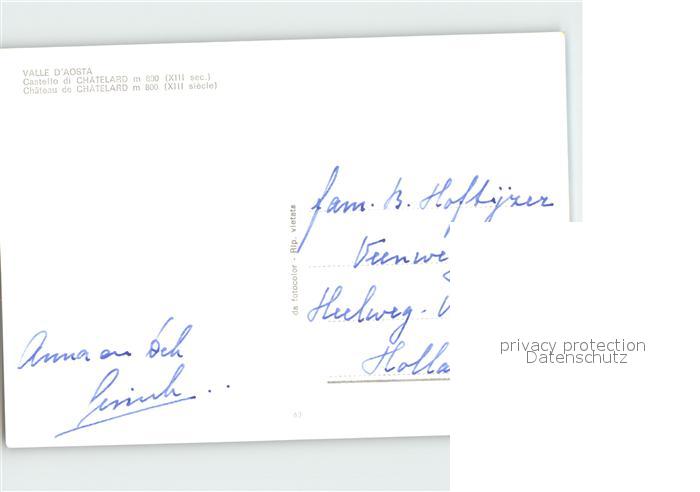 VALLE D'AOSTA
Castello di CHÂTELARD m 800 (XIII sec.)
Château de CHÂTELARD m 800 (XIII siècle)
da fotocolor - Rip. vietata
fam. B. Hoftijzer
Veenwe
Heelweg. V
Holla
Anna en
63
privacy protection
Datenschutz